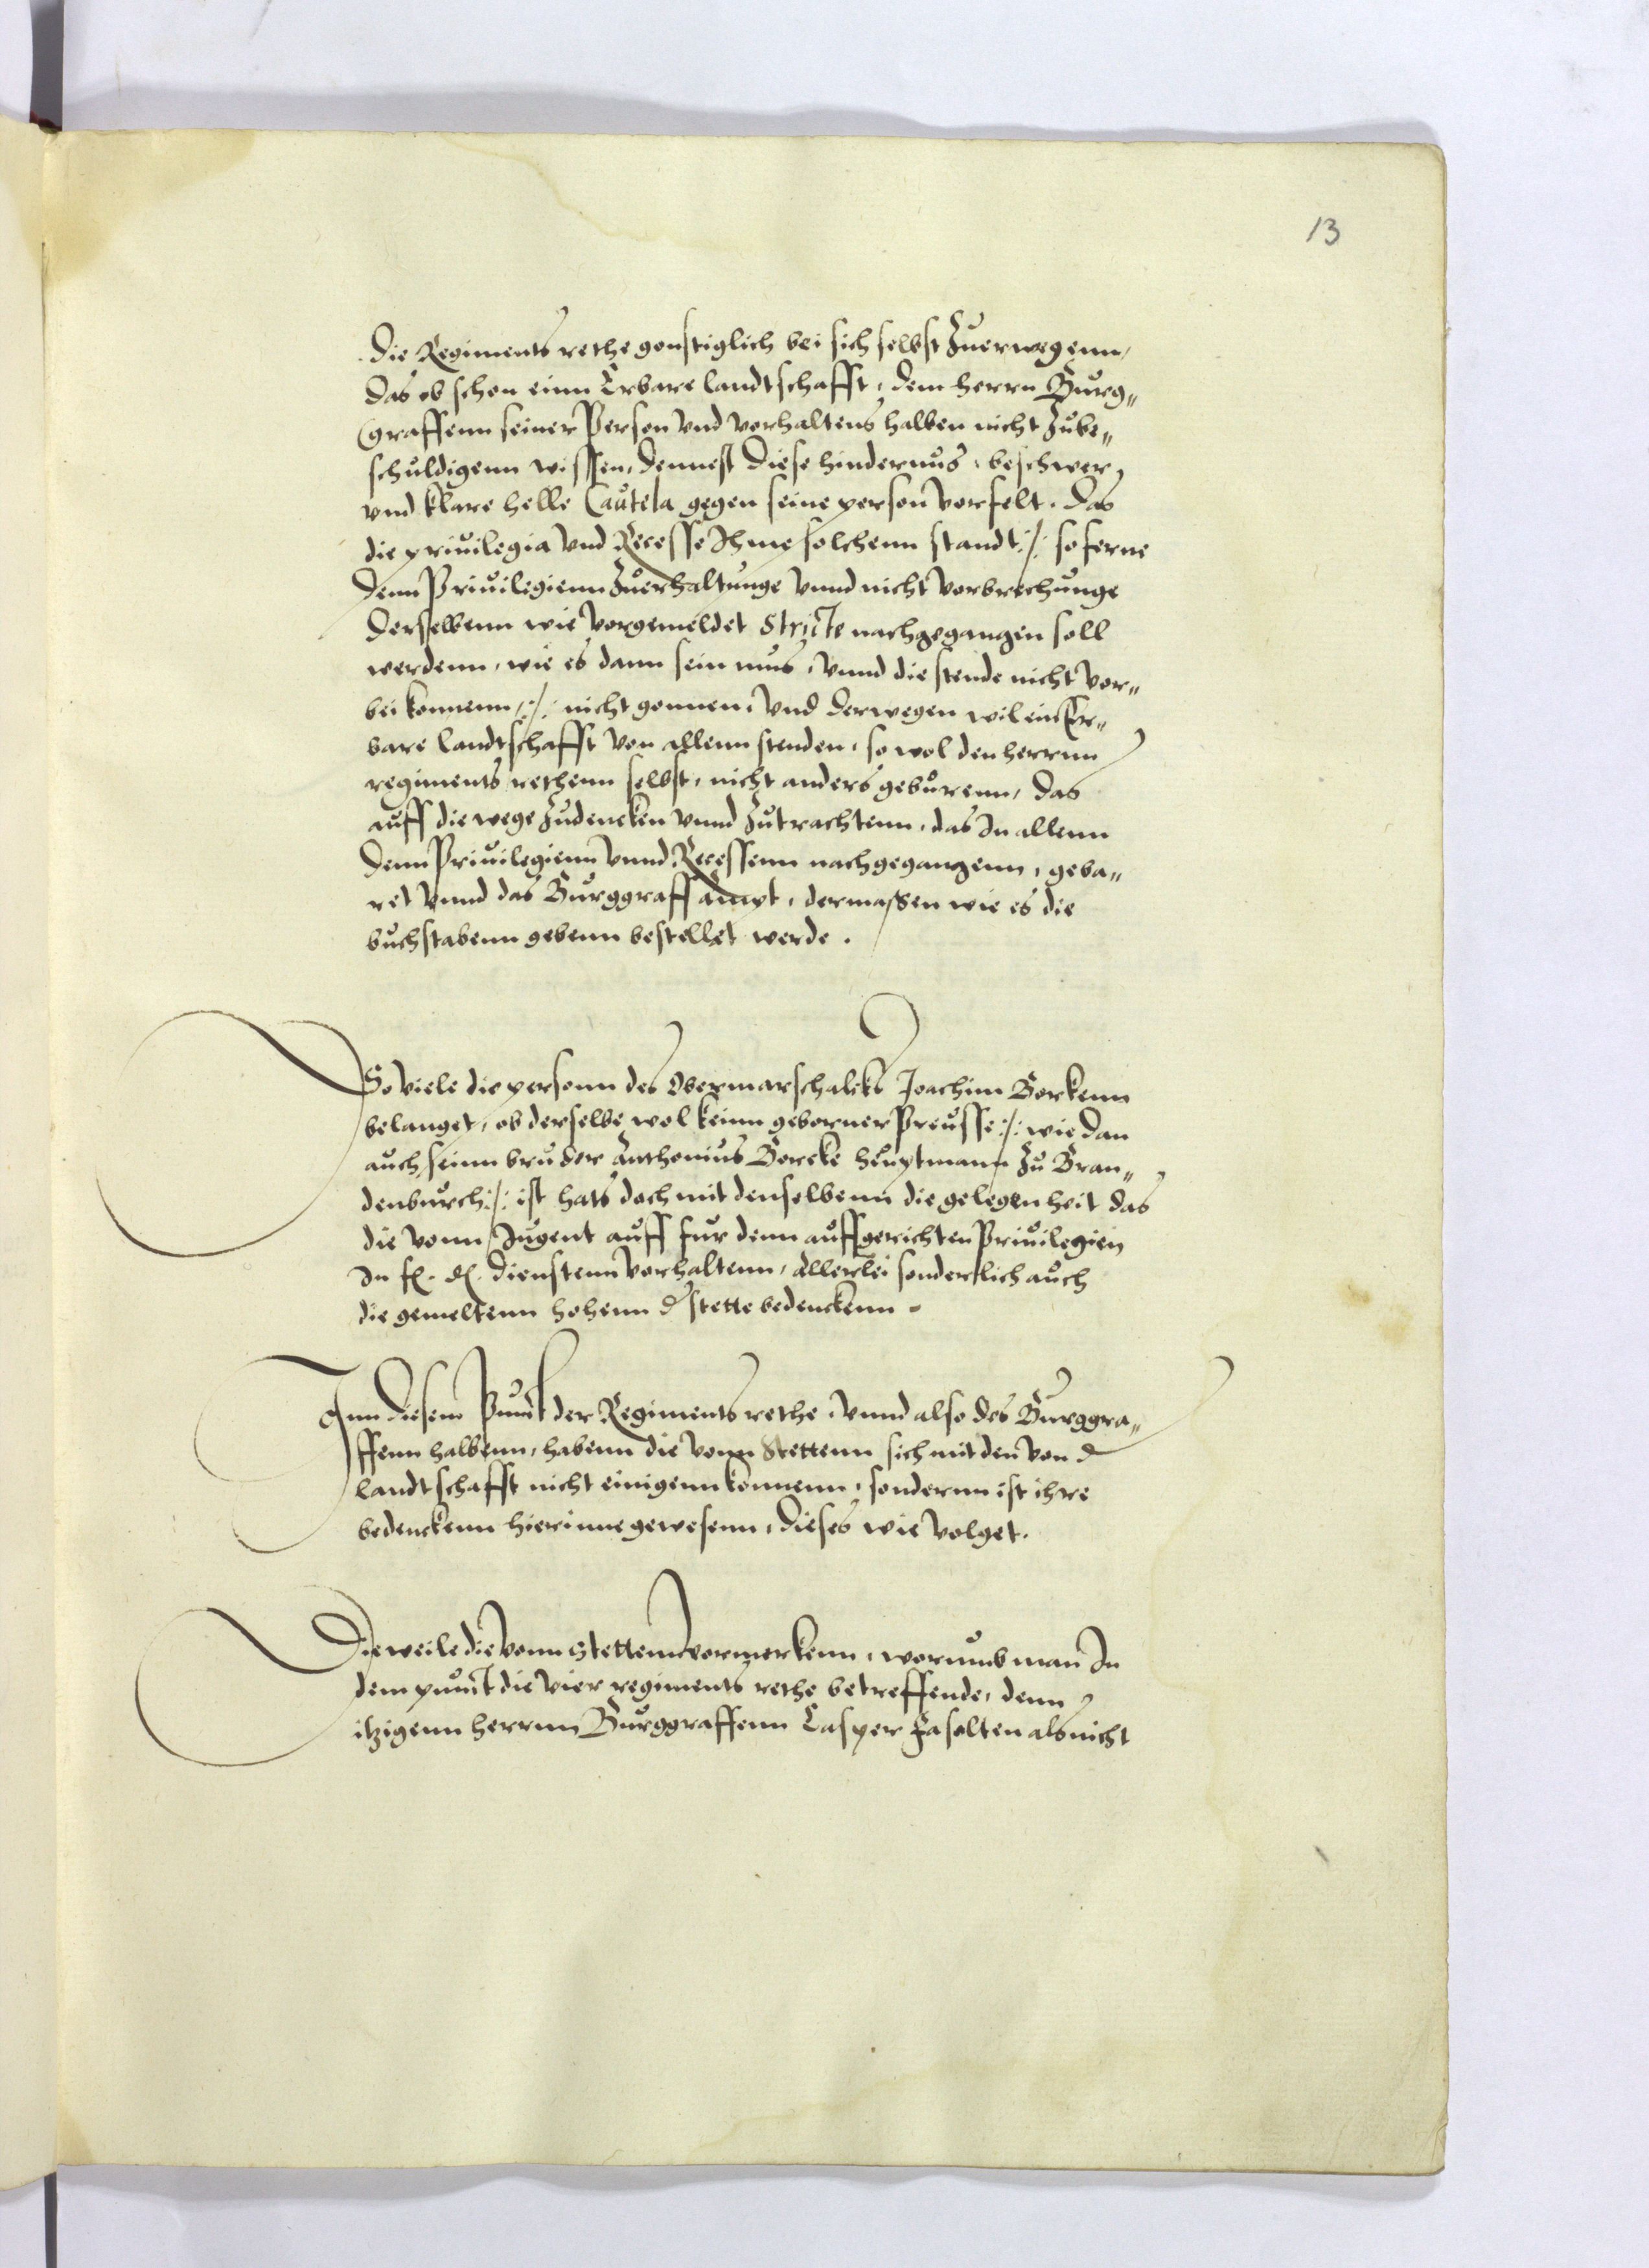 13
die Regiments rethe gonstiglich bei sich selbst Zuerwegenn,
das ob schon einn Erbare landtschafft, dem herrn Burg„
graffenn seiner Person vnd vorhaltens halben nicht Zube„
schuldigenn wissen, dennest diese hindernus, beschwer,
vnd klare helle Cautela gegen seine person vorfelt. das
die priuilegia vnd Recesse Ihme solchenn standt :/: so ferne
denn Priuilegienn Zuerhaltunge vnnd nicht vorbrechunge
derselbenn wie vorgemeldet stricte nachgegangen soll
werdenn, wie es dann sein mus, vnnd die stende nicht vor„
bei konnenn :/: nicht gonnen, vnd derwegen wil ein Er„
bare landtschafft von allenn stenden, so wol den herrnn
regiments rethenn selbst, nicht anders geburenn, das
auff die wege Zudencken vnnd Zutrachtenn, das In allenn
denn Priuilegienn vnnd Recessenn nachgegangenn, geba„
ret vnnd das Burggraffampt, dermassen wie es die
buchstabenn gebenn bestellet werde.
So viele die personn des Obermarschalcks Joachim Borkenn
belanget, ob derselbe wol keinn geborner Preusse :/: wie dan
auch seinn bruder Anthonius Borcke heuptmann Zu Bran„
denburch :/: ist hats doch mit denselbenn die gelegenheit das
die vonn Jugent auff fur denn auffgerichten Priuilegien
In f. d. dienstenn vorhaltenn, allerlei sonderlich auch
die gemeltenn hohenn stette bedenckenn.
Inn diesem Punct der Regiments rethe, vnnd also des Burggra„
ffenn halbenn, habenn die vonn Stettenn sich mit den von d
landtschafft nicht einigenn konnenn, sondernn ist ihre
bedenckenn hierinne gewesenn, dieses wie volget.
Dieweile die vonn Stettenn vormerkenn, worumb man In
dem punct die vier regiments rethe betreffende, denn
itzigenn herrnn Burggraffenn Casper Fasolten als nicht